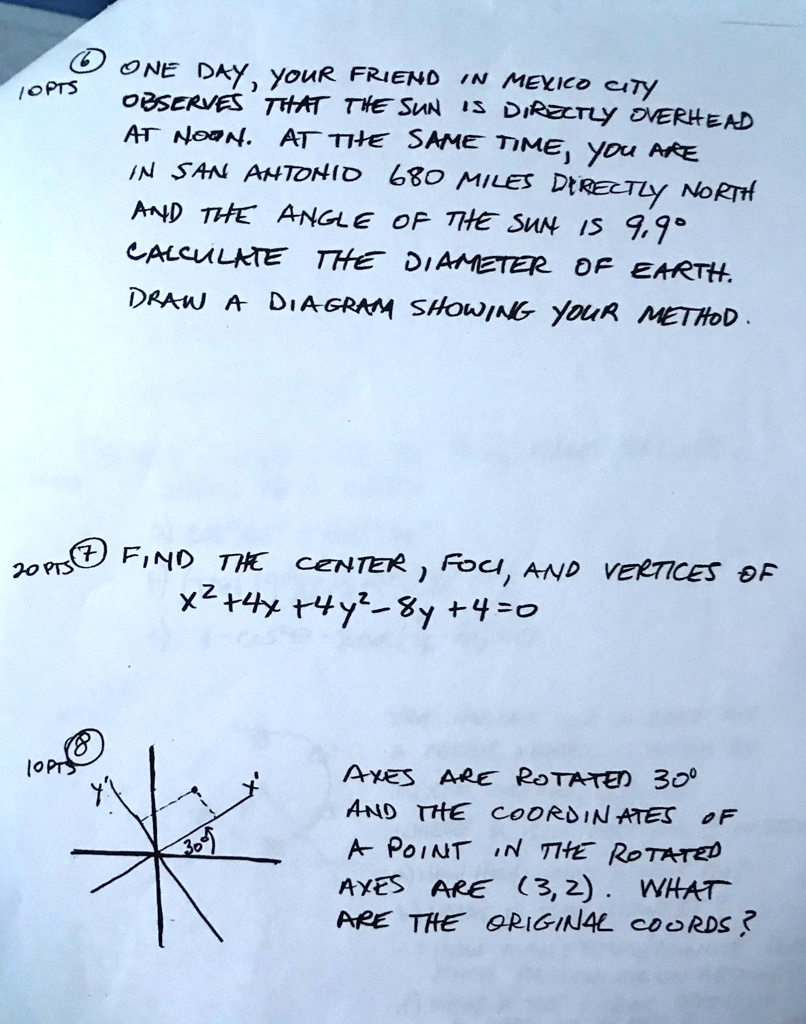 ⑥ ONE DAY, YOUR FRIEND IN MEXICO CITY
10PTS
OBSERVES THAT THE SUN IS DIRECTLY OVERHEAD
AT NOON. AT THE SAME TIME, YOU ARE
IN SAN ANTONIO 680 MILES DIRECTLY NORTH
AND THE ANGLE OF THE SUN IS 9.9°
CALCULATE THE DIAMETER OF EARTH.
DRAW A DIAGRAM SHOWING YOUR METHOD.
20 PTS ⑦ FIND THE CENTER, FOCI, AND VERTICES OF
x²+4x+4y²-8y+4=0
10PTS ⑧
Y' X'
30°
AXES ARE ROTATED 30°
AND THE COORDINATES OF
A POINT IN THE ROTATED
AXES ARE (3,2). WHAT
ARE THE ORIGINAL COORDS?